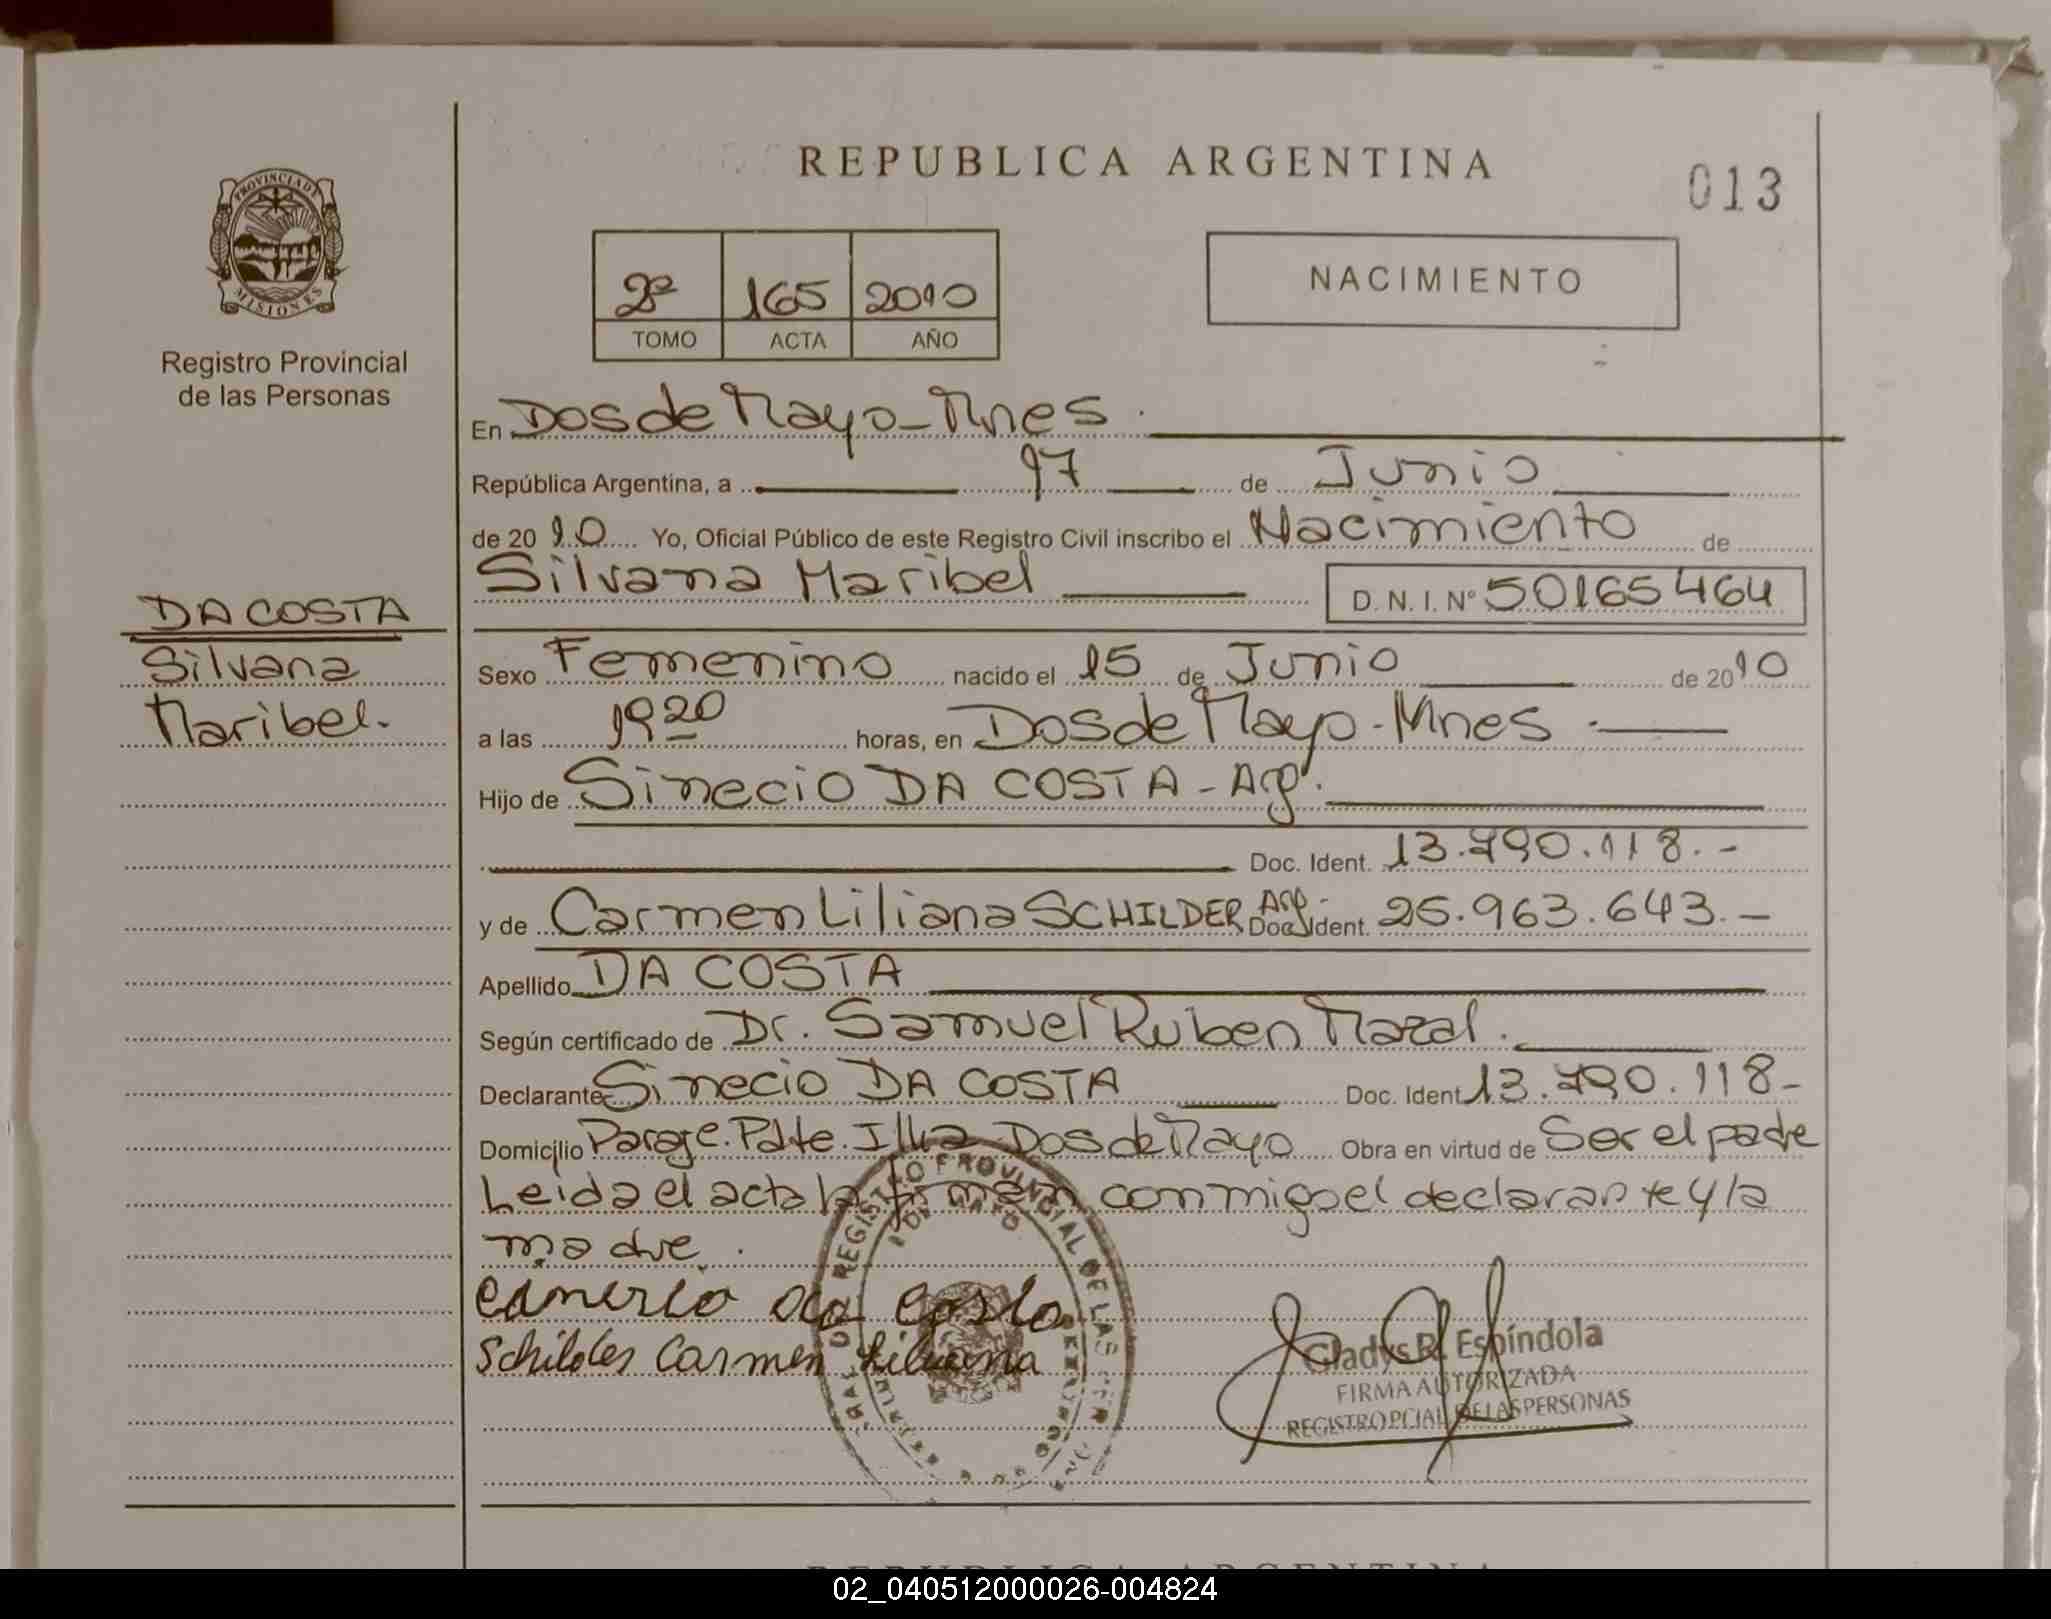 REPUBLICA ARGENTINA
013
PROVINCIA DE
MISIONES
Registro Provincial
de las Personas
2º 165 2010
TOMO ACTA AÑO
NACIMIENTO
En Dos de Mayo - Mnes.
República Argentina, a 17 de Junio
de 2010 Yo, Oficial Público de este Registro Civil inscribo el Nacimiento de
Silvana Maribel D. N. I. Nº 50165464
DA COSTA
Silvana
Maribel.
Sexo Femenino nacido el 15 de Junio de 2010
a las 19 20 horas, en Dos de Mayo - Mnes.
Hijo de Sinecio DA COSTA - Arg.
Doc. Ident. 13.790.118.-
y de Carmen Liliana SCHILDER Arg.- Doc. Ident. 25.963.643.-
Apellido DA COSTA
Según certificado de Dr. Samuel Ruben Mazal.
Declarante Sinecio DA COSTA Doc. Ident. 13.790.118-
Domicilio Paraje. Pdte. Illia Dos de Mayo Obra en virtud de Ser el padre
Leida el acta la firman conmigo el declarante y la
madre.
da Costa
Schilder Carmen Liliana
REGISTRO PROVINCIAL DE LAS
DE MAYO
Gladys R. Espíndola
FIRMA AUTORIZADA
REGISTRO PCIAL DE LAS PERSONAS
REPUBLICA ARGENTINA
02_040512000026-004824